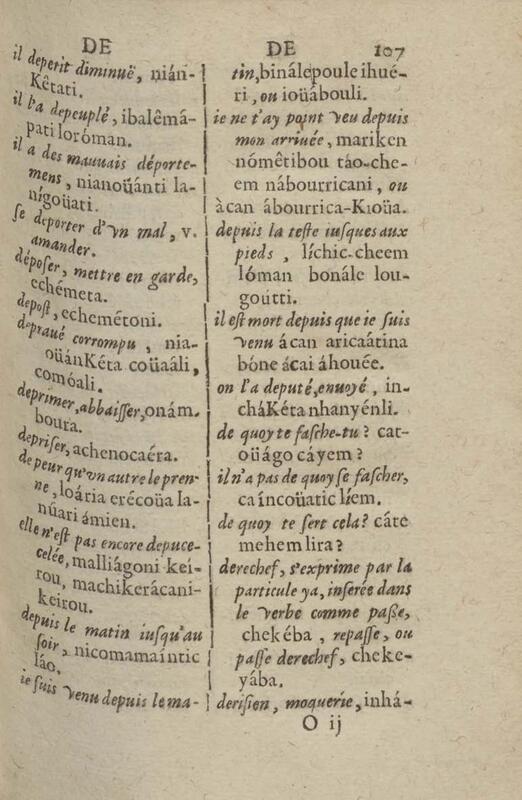 DE
il deperit diminuë, nián-
Kêtati.
il l'a depeuplé, ibalêmá-
pati loróman.
il a des mauuais déporte-
mens, nianoüánti la-
nigoüati.
se deporter d'vn mal, v.
amander.
déposer, mettre en garde,
echémeta.
depost, echemétoni.
deprauê corrompu, nia-
oüánKéta coüaáli,
comóali.
deprimer, abbaisser, onám.
boura.
depriser, achenocaéra.
de peur qu'vn autre le pren-
ne, loária erécoüa la-
núari ámien.
elle n'est pas encore depuce-
celée, malliágoni kei-
rou, machikerácani-
keirou.
depuis le matin iusqu'au
soir, nicomamaíntic
láo.
ie suis venu depuis le ma-
DE 107
tin, binále poule ihué-
ri, ou ioüábouli.
ie ne t'ay point veu depuis
mon arriuée, mariken
nómêtibou táo-che-
em nábourricani, ou
àcan ábourrica-Kioüa.
depuis la teste iusques aux
pieds, líchic-cheem
lóman bonále lou-
goutti.
il est mort depuis que ie suis
venu ácan aricaátina
bóne ácai áhouée.
on l'a deputé, enuoyé, in-
cháKéta nhanyénli.
de quoy te fasche-tu? cat-
oüágo cáyem?
il n'a pas de quoy se fascher,
ca íncoüatic líem.
de quoy te sert cela? cáte
mehem lira?
derechef, s'exprime par la
particule ya, inserée dans
le verbe comme paße,
chekéba, repasse, ou
passe derechef, cheke-
yába.
derision, moquerie, inhá-
O ij